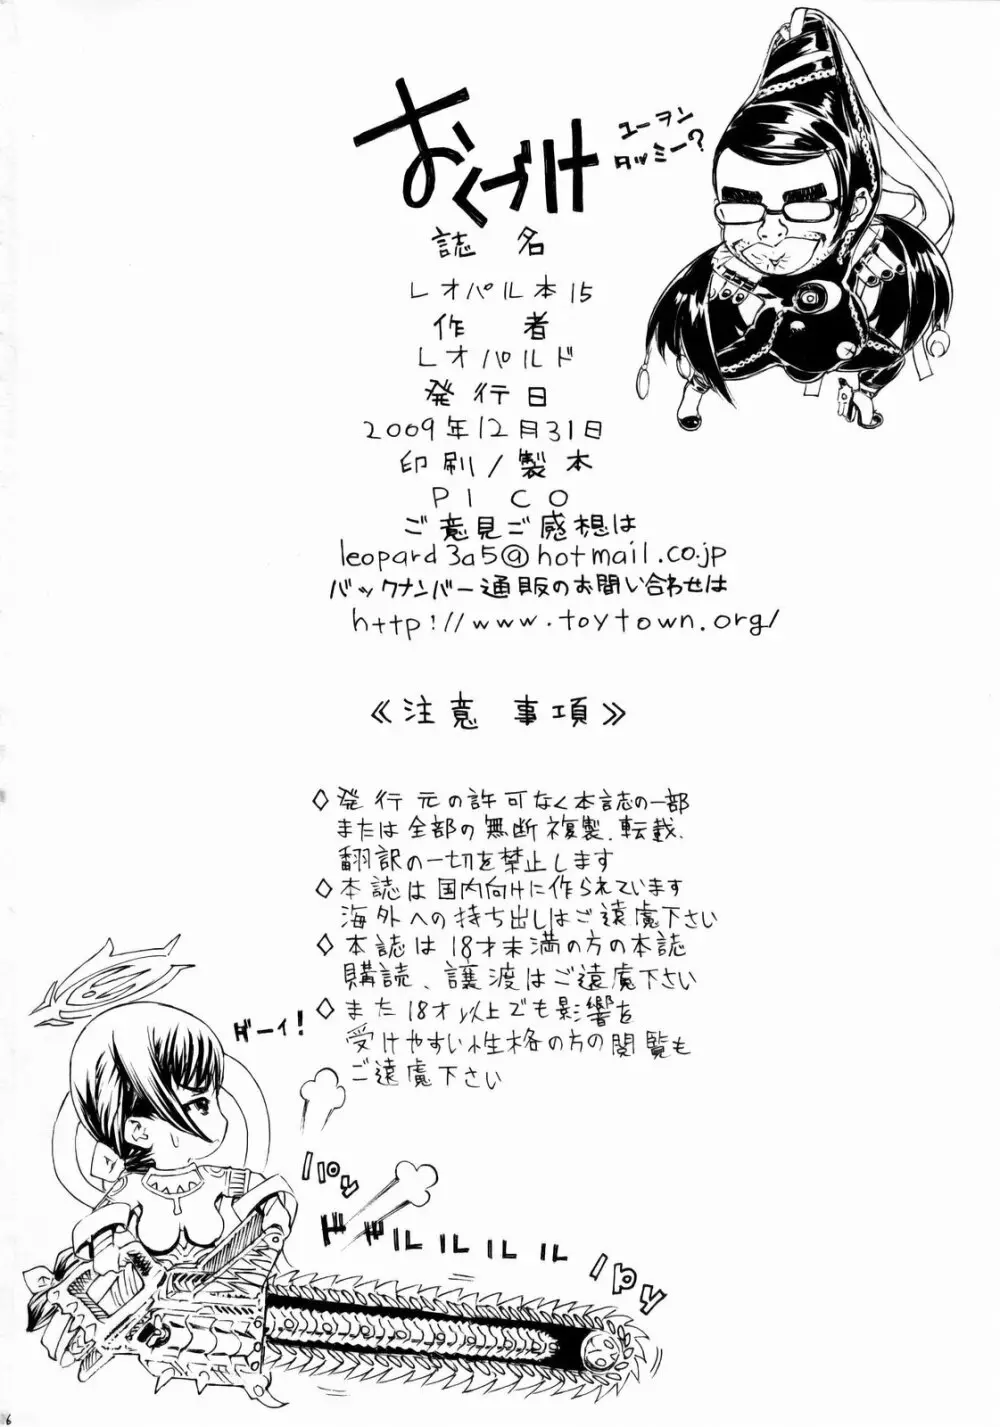 おくづけ
ユーヲン
タッミー?
誌名
レオパル本15
作者
レオパルド
発行日
2009年12月31日
印刷/製本
PICO
ご意見ご感想は
leopard3a5@hotmail.co.jp
バックナンバー通販のお問い合わせは
http://www.toytown.org/
《注意 事項》
◇発行元の許可なく本誌の一部
または全部の無断複製、転載、
翻訳の一切を禁止します
◇本誌は国内向けに作られています
海外への持ち出しはご遠慮下さい
◇本誌は18才未満の方の本誌
購読、譲渡はご遠慮下さい
◇また18才以上でも影響を
受けやすい性格の方の閲覧も
ご遠慮下さい
ギーィ!
パパッ
ドドルルルルル
パッ
6